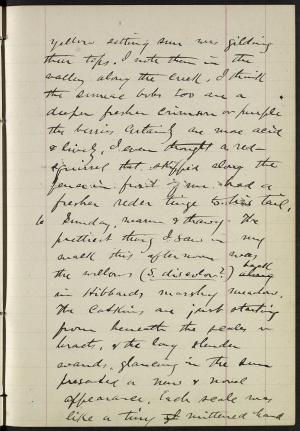 yellow setting sun was gilding
their tops. I note them in the
valley along the creek. I think
the sumac bobs too are a
deeper fresher crimson or purple
the berries certainly are more acid
& lively. I even thought a red
squirrel that skipped along the
fence in front of me had a
fresher redder tinge to his tail.
16 Sunday, warm & thawy. The
prettiest thing I saw in my
walk this afternoon was
the willows (S. discolor?)
in Hibbards marshy meadow.
The catkins are just starting
from beneath the scales or
bracts, & the long slender
wands, glancing in the sun
presented a new & novel
appearance. Each scale was
like a tiny mittened hand